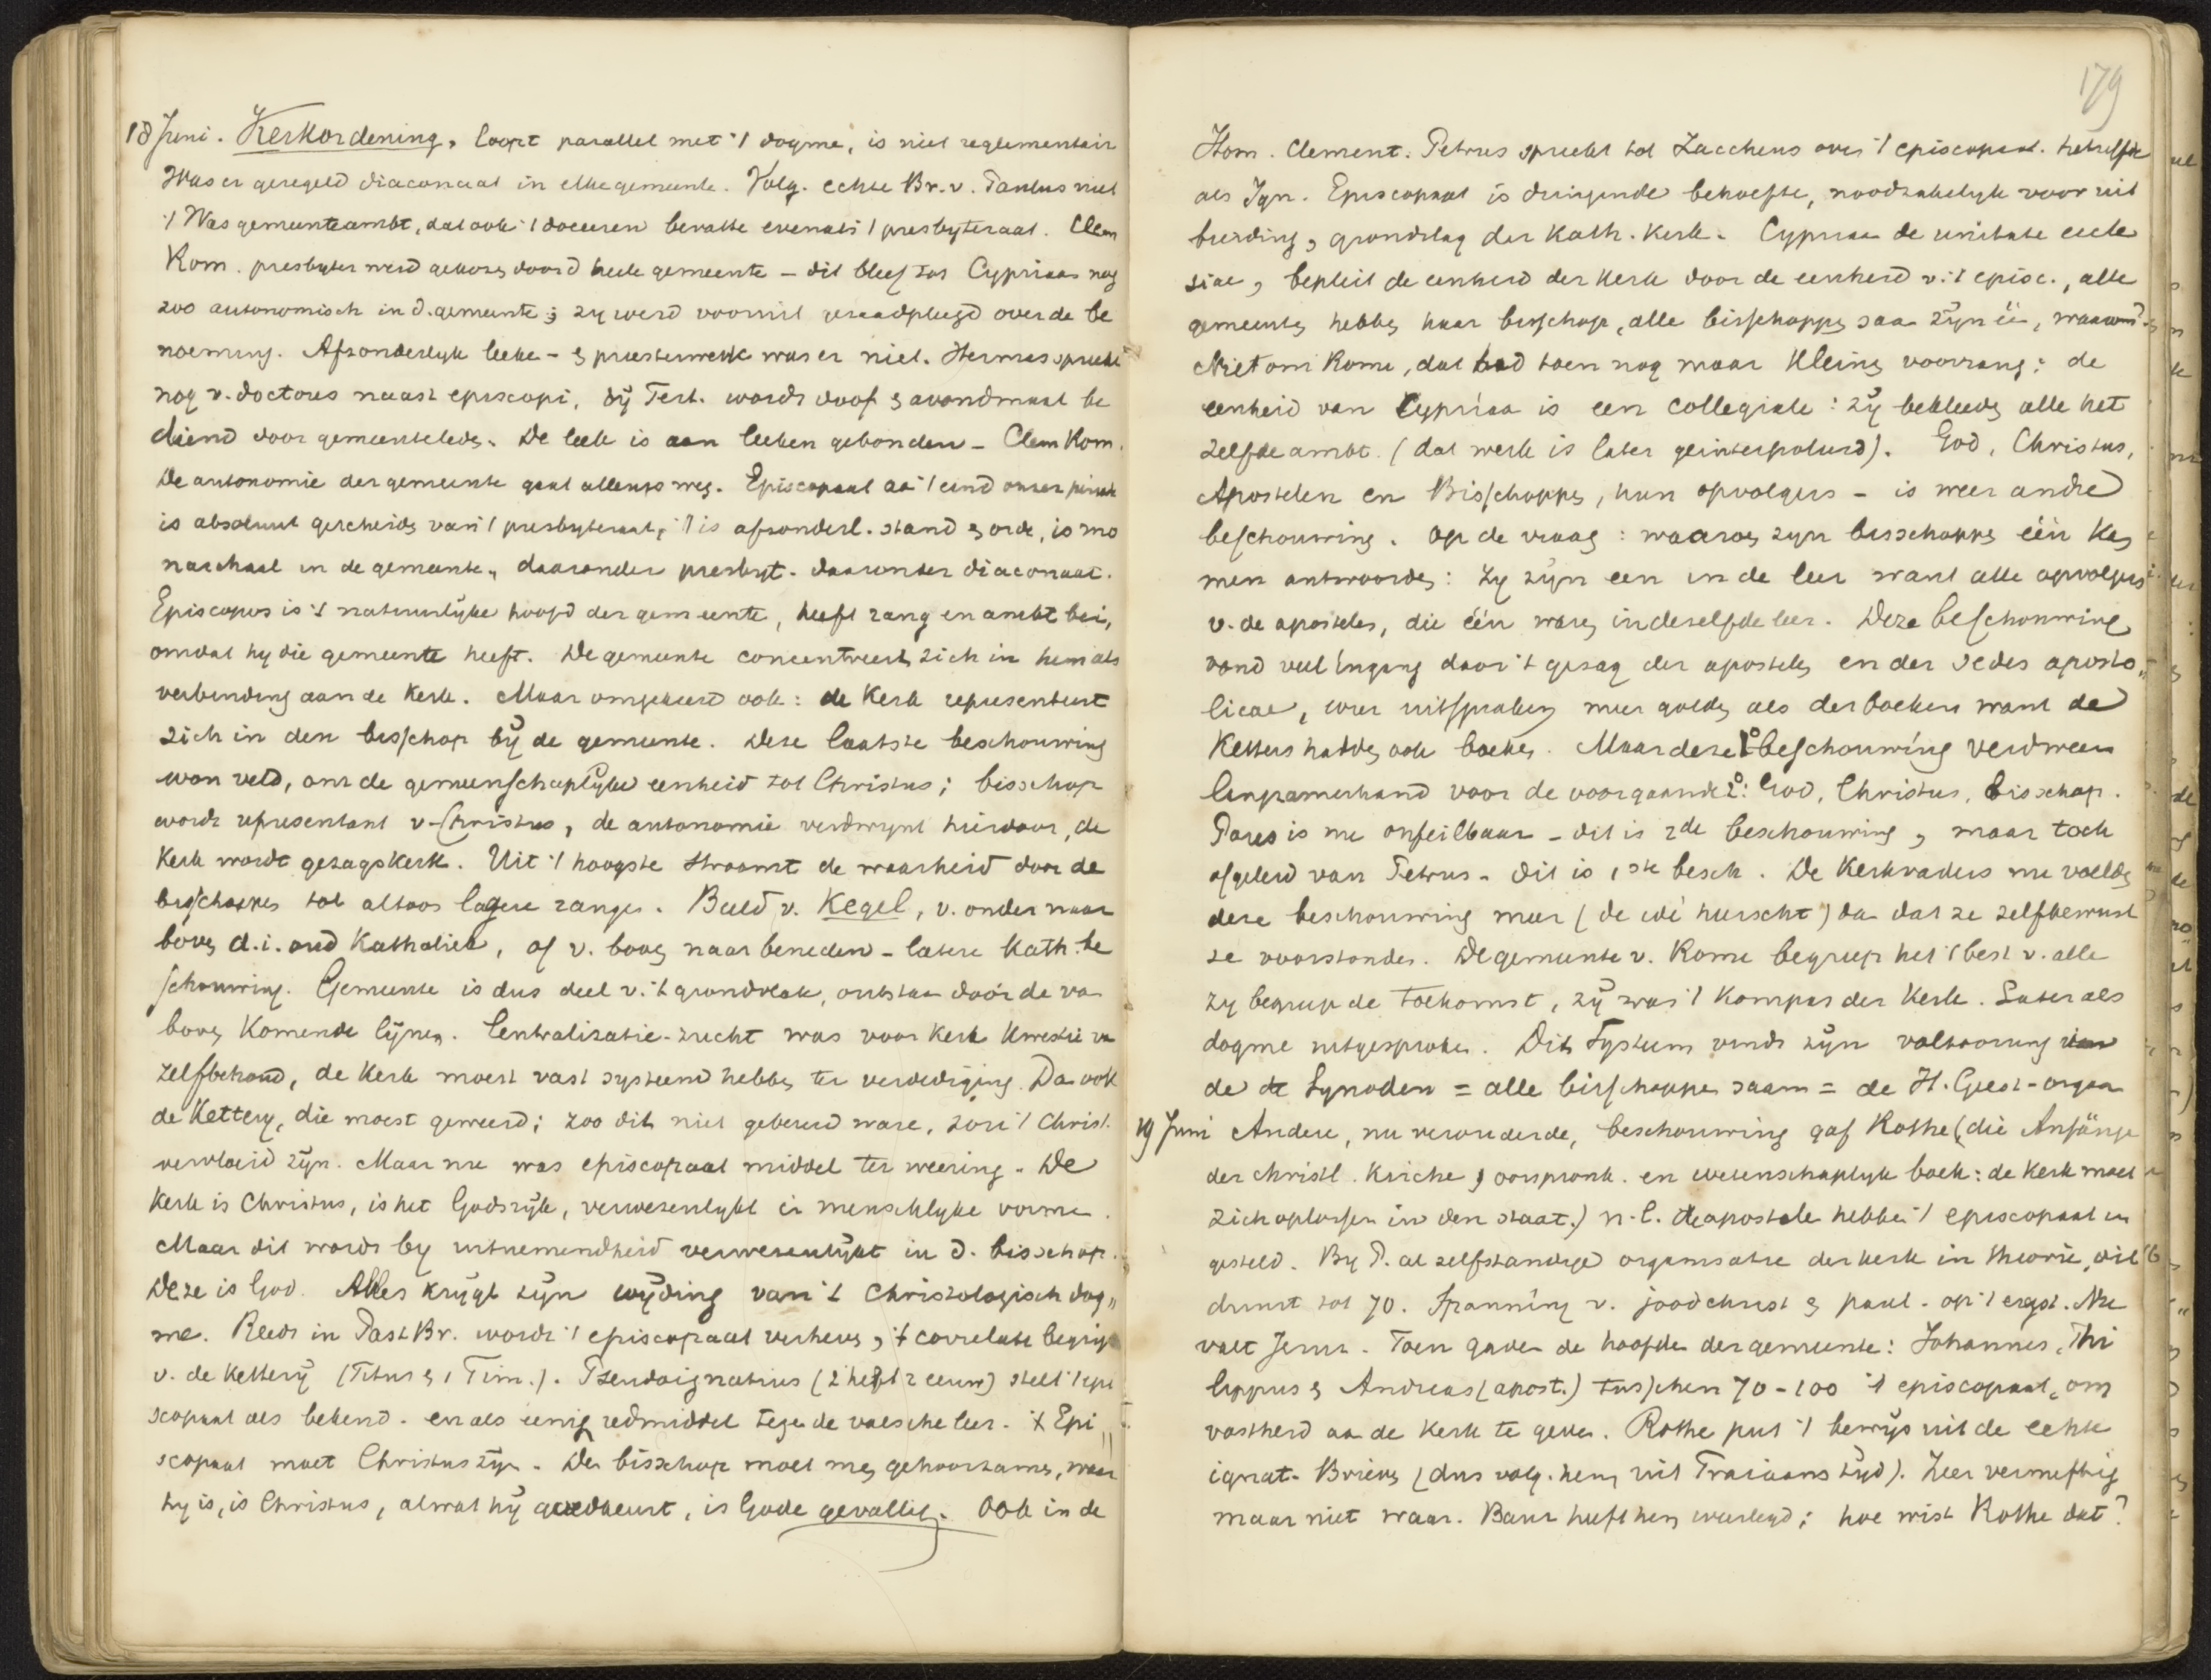 18 Juni. Kerkordening, loopt parallel met 't dogme, is niet reglementair
Was er geregeld diaconaat in elke gemeente. Volg. echte Br. v. Paulus niet
't Was gemeenteambt, dat ook 't doceeren bevatte evenals 't presbyteraat. Clem
Rom. presbyter werd gekozen door d heele gemeente – dit bleef tot Cypriaan nog
zoo autonomisch in d. gemeente; zy werd vooruit geraadpleegd over de be
noeming. Afzonderlyk leeke- & priesterwerk was er niet. Hermas spreekt
nog v. doctores naast episcopi, bÿ Tert. wordt doof & avondmaal be
diend door gemeenteleden. De leek is aan leeken gebonden – Clem Rom.
De autonomie der gemeente gaat allengs weg. Episcopaat aan 't eind onzer periode
is absoluut gescheiden van 't presbyteraat, 't is afzonderl. stand & orde, is mo
narchaal in de gemeente, daaronder presbyt. daaronder diaconaat.
Episcopus is 't natuurlÿke hoofd der gemeente, heeft rang en ambt bei,
omdat hy die gemeente heeft. De gemeente concentreert zich in hem als
verbinding aan de Kerk. Maar omgekeerd ook: de Kerk representeert
zich in den bisschop bÿ de gemeente. Deze laatste beschouwing
won veld, om de gemeenschaplÿke eenheid tot Christus; bisschop
wordt representant v. Christus, de autonomie verdwynt hierdoor, de
Kerk wordt gezagskerk. Uit 't hoogste stroomt de waarheid door de
bisschoppen tot altoos lagere rangen. Beeld v. Kegel, v. onder naar
boven d.i. oud Katholiek, of v. boven naar beneden – latere Kath. be
schouwing. Gemeente is dus deel v. 't grondvlak, ontstaan door de van
boven Komende lÿnen. Centralisatie-zucht was voor Kerk Kwestie van
zelfbehoud, de Kerk moest vast systeem hebben ter verdediging. Dan ook
de Kettery, die moest geweerd; zoo dit niet gebeurd ware, zou 't Christ.
vervloeid zÿn. Maar nu was episcopaat middel ter weering. De
Kerk is Christus, is het Godsrÿk, verwezenlykt in menschlyke vormen.
Maar dit wordt by uitnemendheid verwezenlÿkt in d. bisschop.
Deze is God. Alles krÿgt zÿn wÿding van 't Christologisch dog„
me. Reeds in Past Br. wordt 't episcopaat verheven, 't correlate begrip
v. de Ketterÿ (Titus & 1 Tim.). Pseudoignatius (2e helft 2 eeuw) stelt 't epi
scopaat als bekend. en als eenig redmiddel tegen de valsche leer. 't Epi„
scopaat moet Christus zÿn. Den bisschop moet men gehoorzamen, waar
hy is, is Christus, al wat hÿ goedkeurt, is Gode gevallig. Ook in de
179
Hom. Clement. Petrus spreekt tot Zaccheus over 't episcopaat. hetzelfde
als Ign. Episcopaat is dringende behoefte, noodzakelyk voor uit
breiding, grondslag der Kath. Kerk. Cypriaan de unitate eccle
siae, bepleit de eenheid der Kerk door de eenheid v. 't episc., alle
gemeenten hebben haar bisschop, alle bisschoppen saam zÿn één, waarom?
Niet om Rome, dat had toen nog maar kleinen voorrang: de
eenheid van Cypriaan is een collegiale: zÿ bekleeden alle het
zelfde ambt. (dat werk is later geinterpoleerd). God, Christus,
Apostelen en Bisschoppen, hun opvolgers – is weer andre
beschouwing. Op de vraag: waarom zyn bisschoppen één Kan
men antwoorden: Zy zÿn een in de leer want alle opvolgers
v. de apostelen, die één waren in dezelfde leer. Deze beschouwing
vond veel ingang door 't gezag der apostelen en der sedes aposto„
licae, wier uitspraken meer golden als der boeken want de
Ketters hadden ook boeken. Maar deze 1o beschouwing verdween
langzamerhand voor de voorgaande 2o: God, Christus, bisschop.
Paus is nu onfeilbaar – dit is 2de beschouwing, maar toch
afgeleid van Petrus – dit is 1ste besch. De Kerkvaders nu voelden
deze beschouwing meer (de idé heerscht) dan dat ze zelfbewust
ze voorstonden. De gemeente v. Rome begreep het 't best v. alle
zy begreep de toekomst, zÿ was 't Kompas der Kerk. Later als
dogme uitgesproken. Dit systeem vindt zÿn voltooiing in
de Synoden = alle bisschoppen saam = de H. Geest-orgaan
19 Juni Andere, nu verouderde, beschouwing gaf Rothe (die Anfänge
der christl. Kirche, oorspronk. en wetenschaplyk boek: de Kerk moet
zich oplossen in den staat.) n.l. de apostelen hebben 't episcopaat in
gesteld. By P. al zelfstandige organisatie der kerk in theorie, dit
duurt tot 70. Spanning v. joodchrist & paul. op 't ergst. Nu
valt Jerus. Toen gaven de hoofden der gemeente: Johannes, Phi
lippus & Andreas (apost.) tusschen 70–100 't episcopaat, om
vastheid aan de Kerk te geven. Rothe put 't bewÿs uit de echte
ignat. Brieven (dus volg. hem uit Trajaans tÿd). Zeer vernuftig
maar niet waar. Baur heeft hem weerlegd; hoe wist Rothe dat?